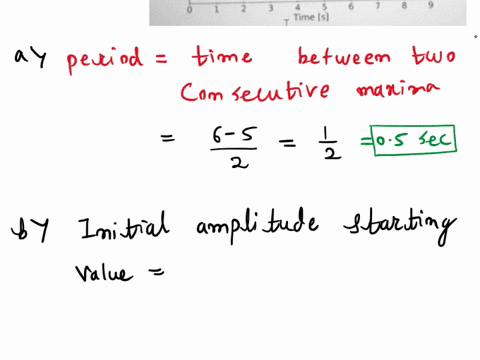 0 1 2 3 4 5 6 7 8 9
T Time [s]
a) period = time between two
Consecutive maxima
= 6-5/2 = 1/2 = 0.5 sec
b) Initial amplitude starting
value =